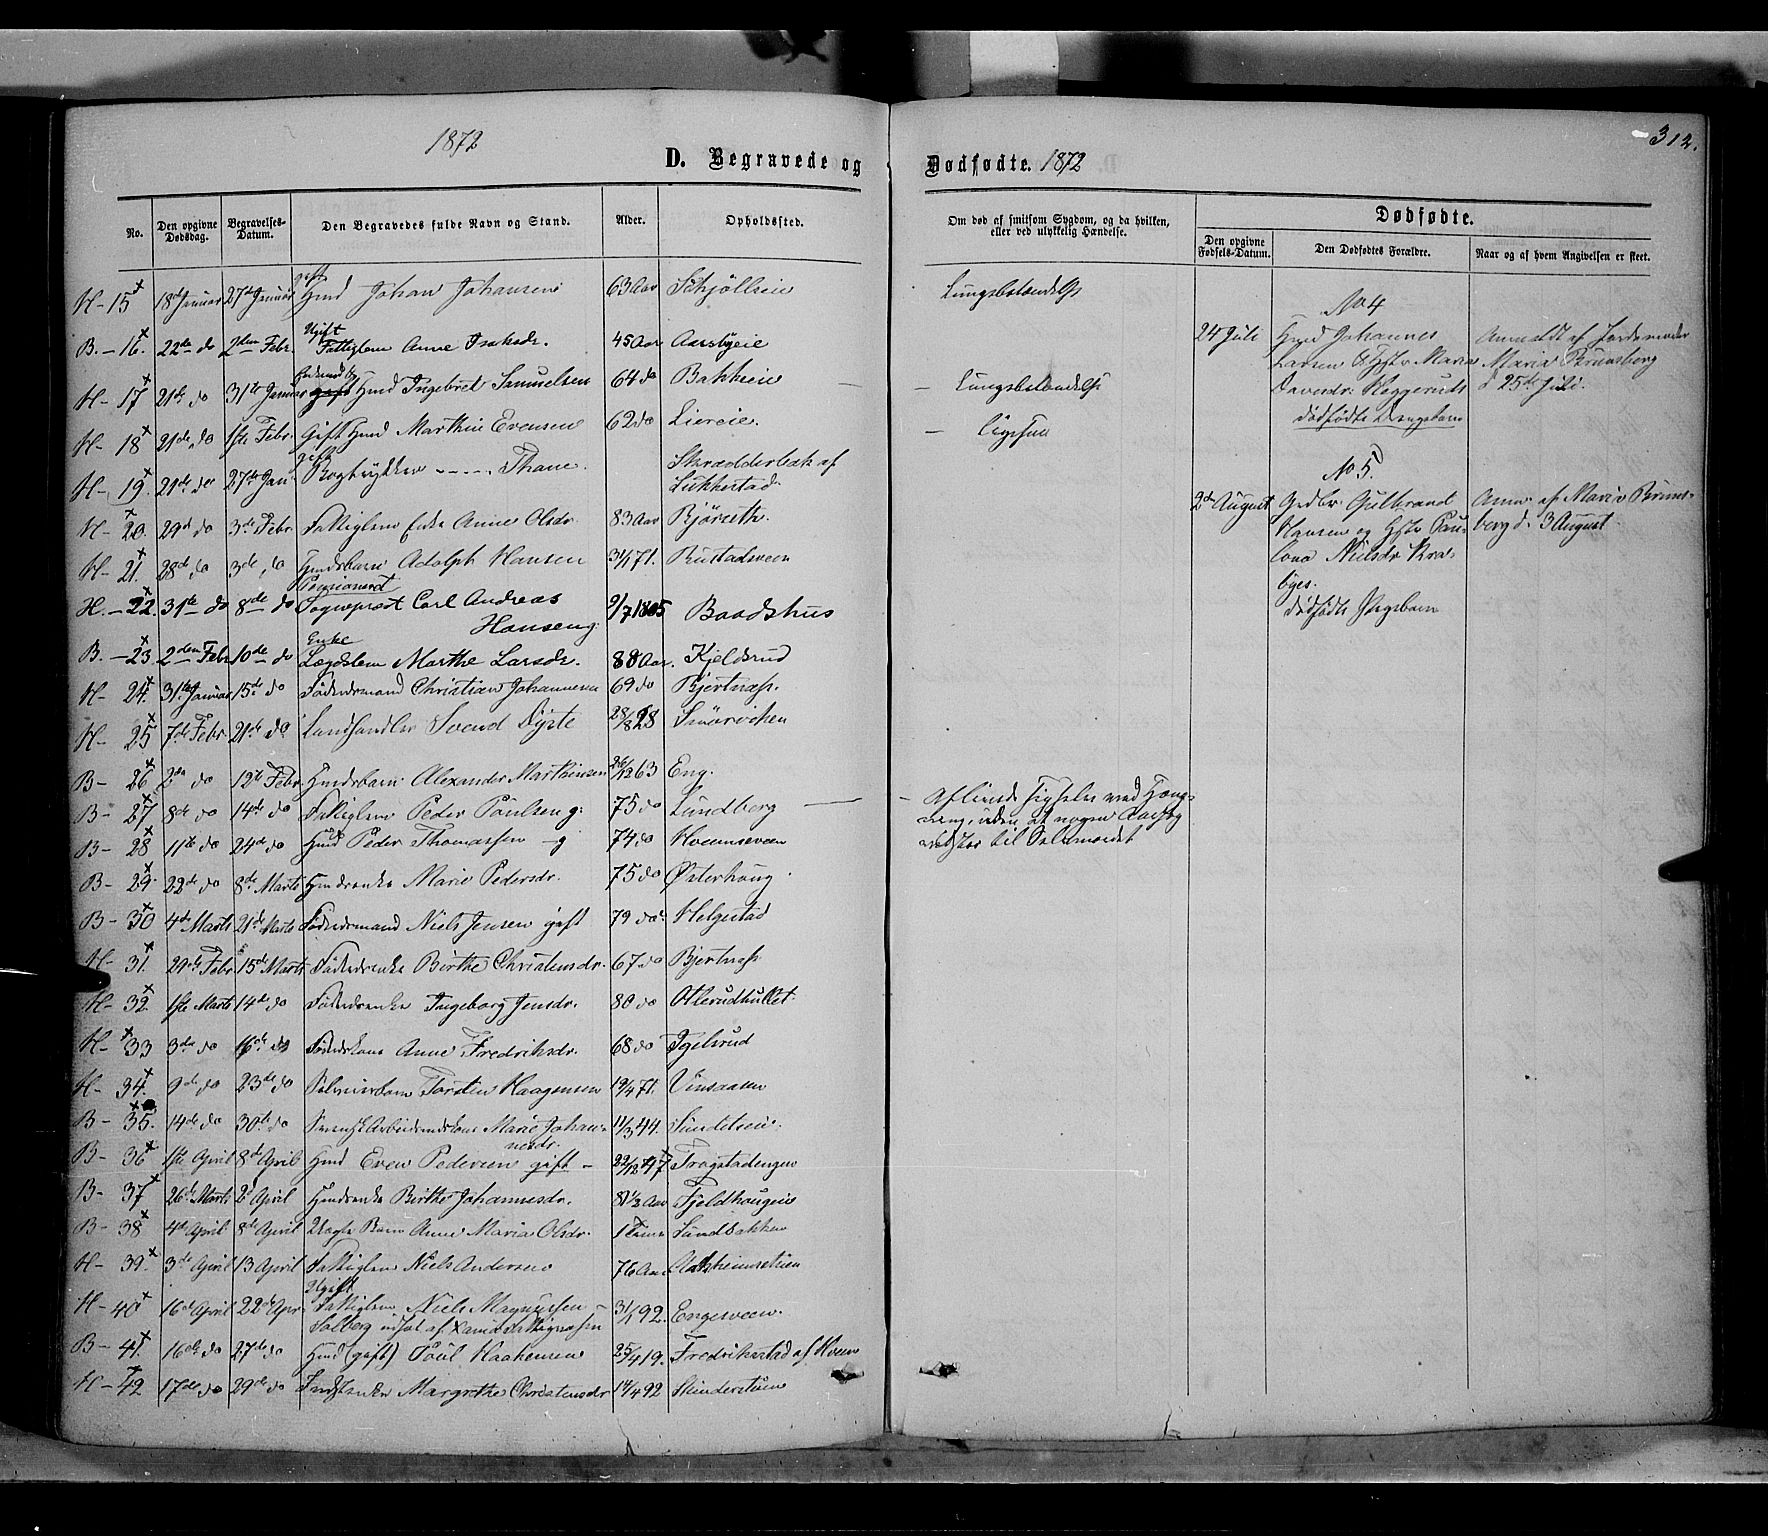 1872
D. Begravede og
Dødfødte. 1872
312.
No.
Den opgivne Dødsdag.
Begravelses-Datum.
Den Begravedes fulde Navn og Stand.
Alder.
Opholdssted.
Om død af smitsom Sygdom, og da hvilken, eller ved ulykkelig Hændelse.
Dødfødte.
Den opgivne Fødsels-Datum.
Den Dødfødtes Forældre.
Naar og af hvem Angivelsen er skeet.
H- 15 18de Januar 27de Januar gift Hmd Johan Johansen 63 Aar
B.- 16. 22de do 2den Febr. Ugift Fattiglem Anne Isaksdr. 45 Aar
H- 17 21de do 31te Januar Hmd Ingebret Samuelsen 64 do Bakkeie
H- 18 21de do 1ste Febr. Gift Hmd Marthin Evensen 62 do Liereie.
H- 19. 21de do 27de Jan. gift Thane. Skrædderbak af
Lukkestad
H- 20. 29de do 3de Febr Fattiglem Enke Anne Olsdr. 83 Aar Bjørseth.
H- 21. 28de do 3de do Hmdsbarn Adolph Hansen 3/1 71. Rustadsveen
Pensioneret
H.- 22. 31te do 8de do Sogneprest Carl Andreas 9/7 1805 Baadshus
Hansen g.
Enke
B.- 23. 2den Febr 10de do Lægdslem Marthe Larsdr. 88 Aar. Kjeldsrud
H- 24. 31te Januar 15de do Føderaadsmand Christian Johannesen 69 do Bjertnæss.
H- 25 7de Febr 21de do Landhandler Svend Dyste 28/8 28 Smørviken
B- 26 2den do 12te Febr. Hmdsbarn Alexander Marthinsen 26/12 63 Eng.
B- 27 8de do 14de do Fattiglem Peder Poulsen g: 75 do Lundberg
B- 28 11te do 24de do Hmd Peder Thomassen g 74 do Hveemsveen
B- 29 22de do 8de Marts Hmdsenke Marie Pedersdr. 75 do Østerhaug
B- 30 4de Marts 21de Marts Føderaadsmand Niels Jensen gift 79 do Helgestad
H- 31. 29de Febr 15de Marts Føderaadsenke Birthe Christensdr. 67 do Bjertnæss
H- 32. 1ste Marts 14de do Føderaadsenke Ingeborg Jensdr. 80 do
H- 33 3de do 16de do Føderaadskone Anne Fredriksdr. 68 do Igelsrud
H- 34. 9de do 23de do Torsten Haagensen 19/4 71.
B- 35. 14de do 30te do Marie Johan-
nesdr. 11/3 44.
B- 36 1ste April 8de April Hmd Even Pedersen gift 22/12 47 Tragstadengen
B- 37 26de Marts 2de April Hmdsenke Birthe Johannesdr. 81½ Aar Fjeldhaugeie
B- 38 4de April 8de April Uægte Barn Anne Maria Olsdr. 1 Time Sundbakken
H- 39. 3de April 13 April Fattiglem Niels Andersen 76 Aar
Ugift
H- 40 16de April 22de Apr Fattiglem Niels Magnussen 31/1 92. Engesveen.
Solberg
B- 41. 16de do 27de do Hmd (gift) Poul Haakensen 25/4 19. Fredrikstad af Hveem
H- 42 17de do 29de do Margrethe Christensdr 14/4 92
Lungebetændelse
Lungebetændelse
Ligesaa
Aflivede sig selv ved Hæng-
ning, uden at nogen Aarsag
til Selvmordet
No 4
24 Juli Hmd Johannes
Larsen & Hstr. Maria
dødfødte Drengebarn
Anmeldt af Jordemoder
Maria Brunsberg
d 25de Juli.
No 5.
2de August Gulbrand
Hansen og Hstr. Pau-
lina Nielsdr.
dødfødte Pigebarn
Anm. af Maria Bruns-
berg d. 3 August.